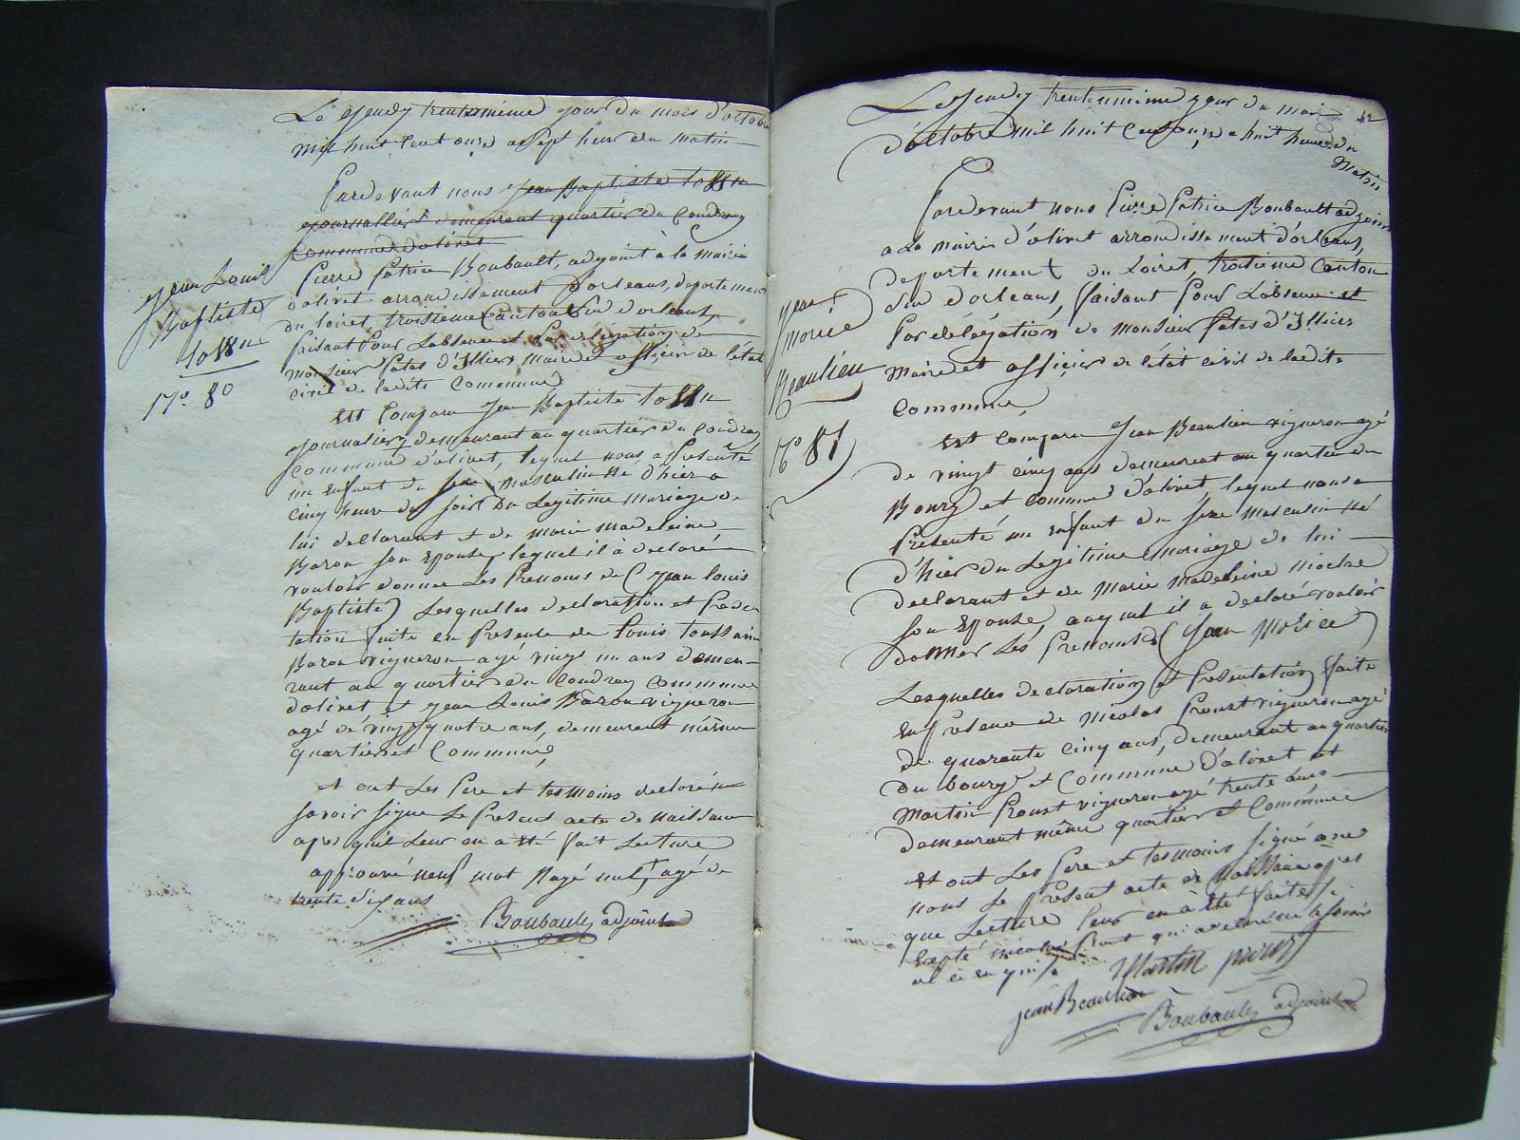 Le Jeudy trente unième jour du mois d'octobre
mil huit Cent onze a Sept heur du matin
Pardevant nous Jean Baptiste
journallier demeurant quartier du Coudray
Commune d'olivet
Pierre Patrice Boubault, adjoint à la mairie
d'olivet arrondissement d'orleans, departement
du loiret, troisieme Canton Sud d'orleans,
faisant Pour Labsence et Par delegation de
monsieur Patas d'Illiers maire et officier de l'état
civil de ladite Commune
Jean Louis
Baptiste
N.o 80
Est Comparu Jean Baptiste
journalier, demeurant au quartier du Coudray
Commune d'olivet, lequel nous a Presenté
un Enfant du Sexe masculin né d'hier a
Cinq heure du soir Du Legitime mariage de
lui declarant et de marie madeleine
Baron son Epouse, lequel il à declaré
vouloir donner Les Prenoms de (Jean louis
Baptiste) Lesquelles declaration et Presen
tation faite en Presence de louis toussain
Baron vigneron agé vingt un ans demeu
rant au quartier du Coudray Commune
d'olivet et jean Louis Baron vigneron
agé de vingt quatre ans, demeurant même
quartier et Commune,
et ont Les Pere et temoins declaré ne
savoir signe Le Present acte de naissance
apres qu'il leur en a été fait Lecture
approuvé neuf mot Rayé nul, agé de
trente dix ans
Boubault adjoint
Le Jeudy trente unième jour du mois
d'octobre mil huit Cent onze a huit heure du
Matin
Pardevant nous Pierre Patrice Boubault adjoint
a La mairie d'olivet arrondissement d'orleans,
departement du Loiret, troisieme Canton
Sud d'orleans, faisant Pour L'absence et
Par delégation de monsieur Patas d'Illiers
Maire et officier de l'état civil de ladite
Commune,
Jean
Morice
Beaulieu
N.o 81
Est Comparu Jean Beaulieu vigneron agé
de vingt cinq ans demeurant au quartier du
Bourg et Commune d'olivet lequel nous a
Presenté un Enfant du Sexe masculin né
d'hier du Legitime mariage de lui
declarant et de Marie Madeleine
son Epouse, auquel il a declaré vouloir
donner Les Prenoms de (Jean Morice)
Lesquelles declaration et Presentation faite
En Presence de nicolas Proust vigneron agé
de quarante cinq ans, demeurant au quartier
du bourg et Commune d'olivet et
Martin Proust vigneron agé trente ans
demeurant même quartier et Commune
Et ont Les Pere et temoins Signé avec
nous Le Présent acte de Naissance apres
que Lecture leur en a été faite
Excepté nicolas Proust qui a declaré ne le savoir
de ce enquis
Martin
jean Beaulieu
Boubault adjoint